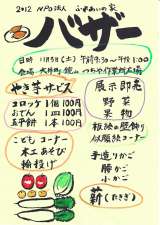 2012 NPO法人 ふれあいの家
バザー
日時 11月3日(土) 午前9:30〜午後1:00
会場
やき芋サービス
コロッケ 1個 100円
おでん 1皿 100円
五平餅 1本 100円
こどもコーナー
木工あそび
輪投げ
展示即売
野菜
果物
板絵の壁飾り
似顔絵コーナー
手造りかご
籐かご
小かご
薪(たきぎ)